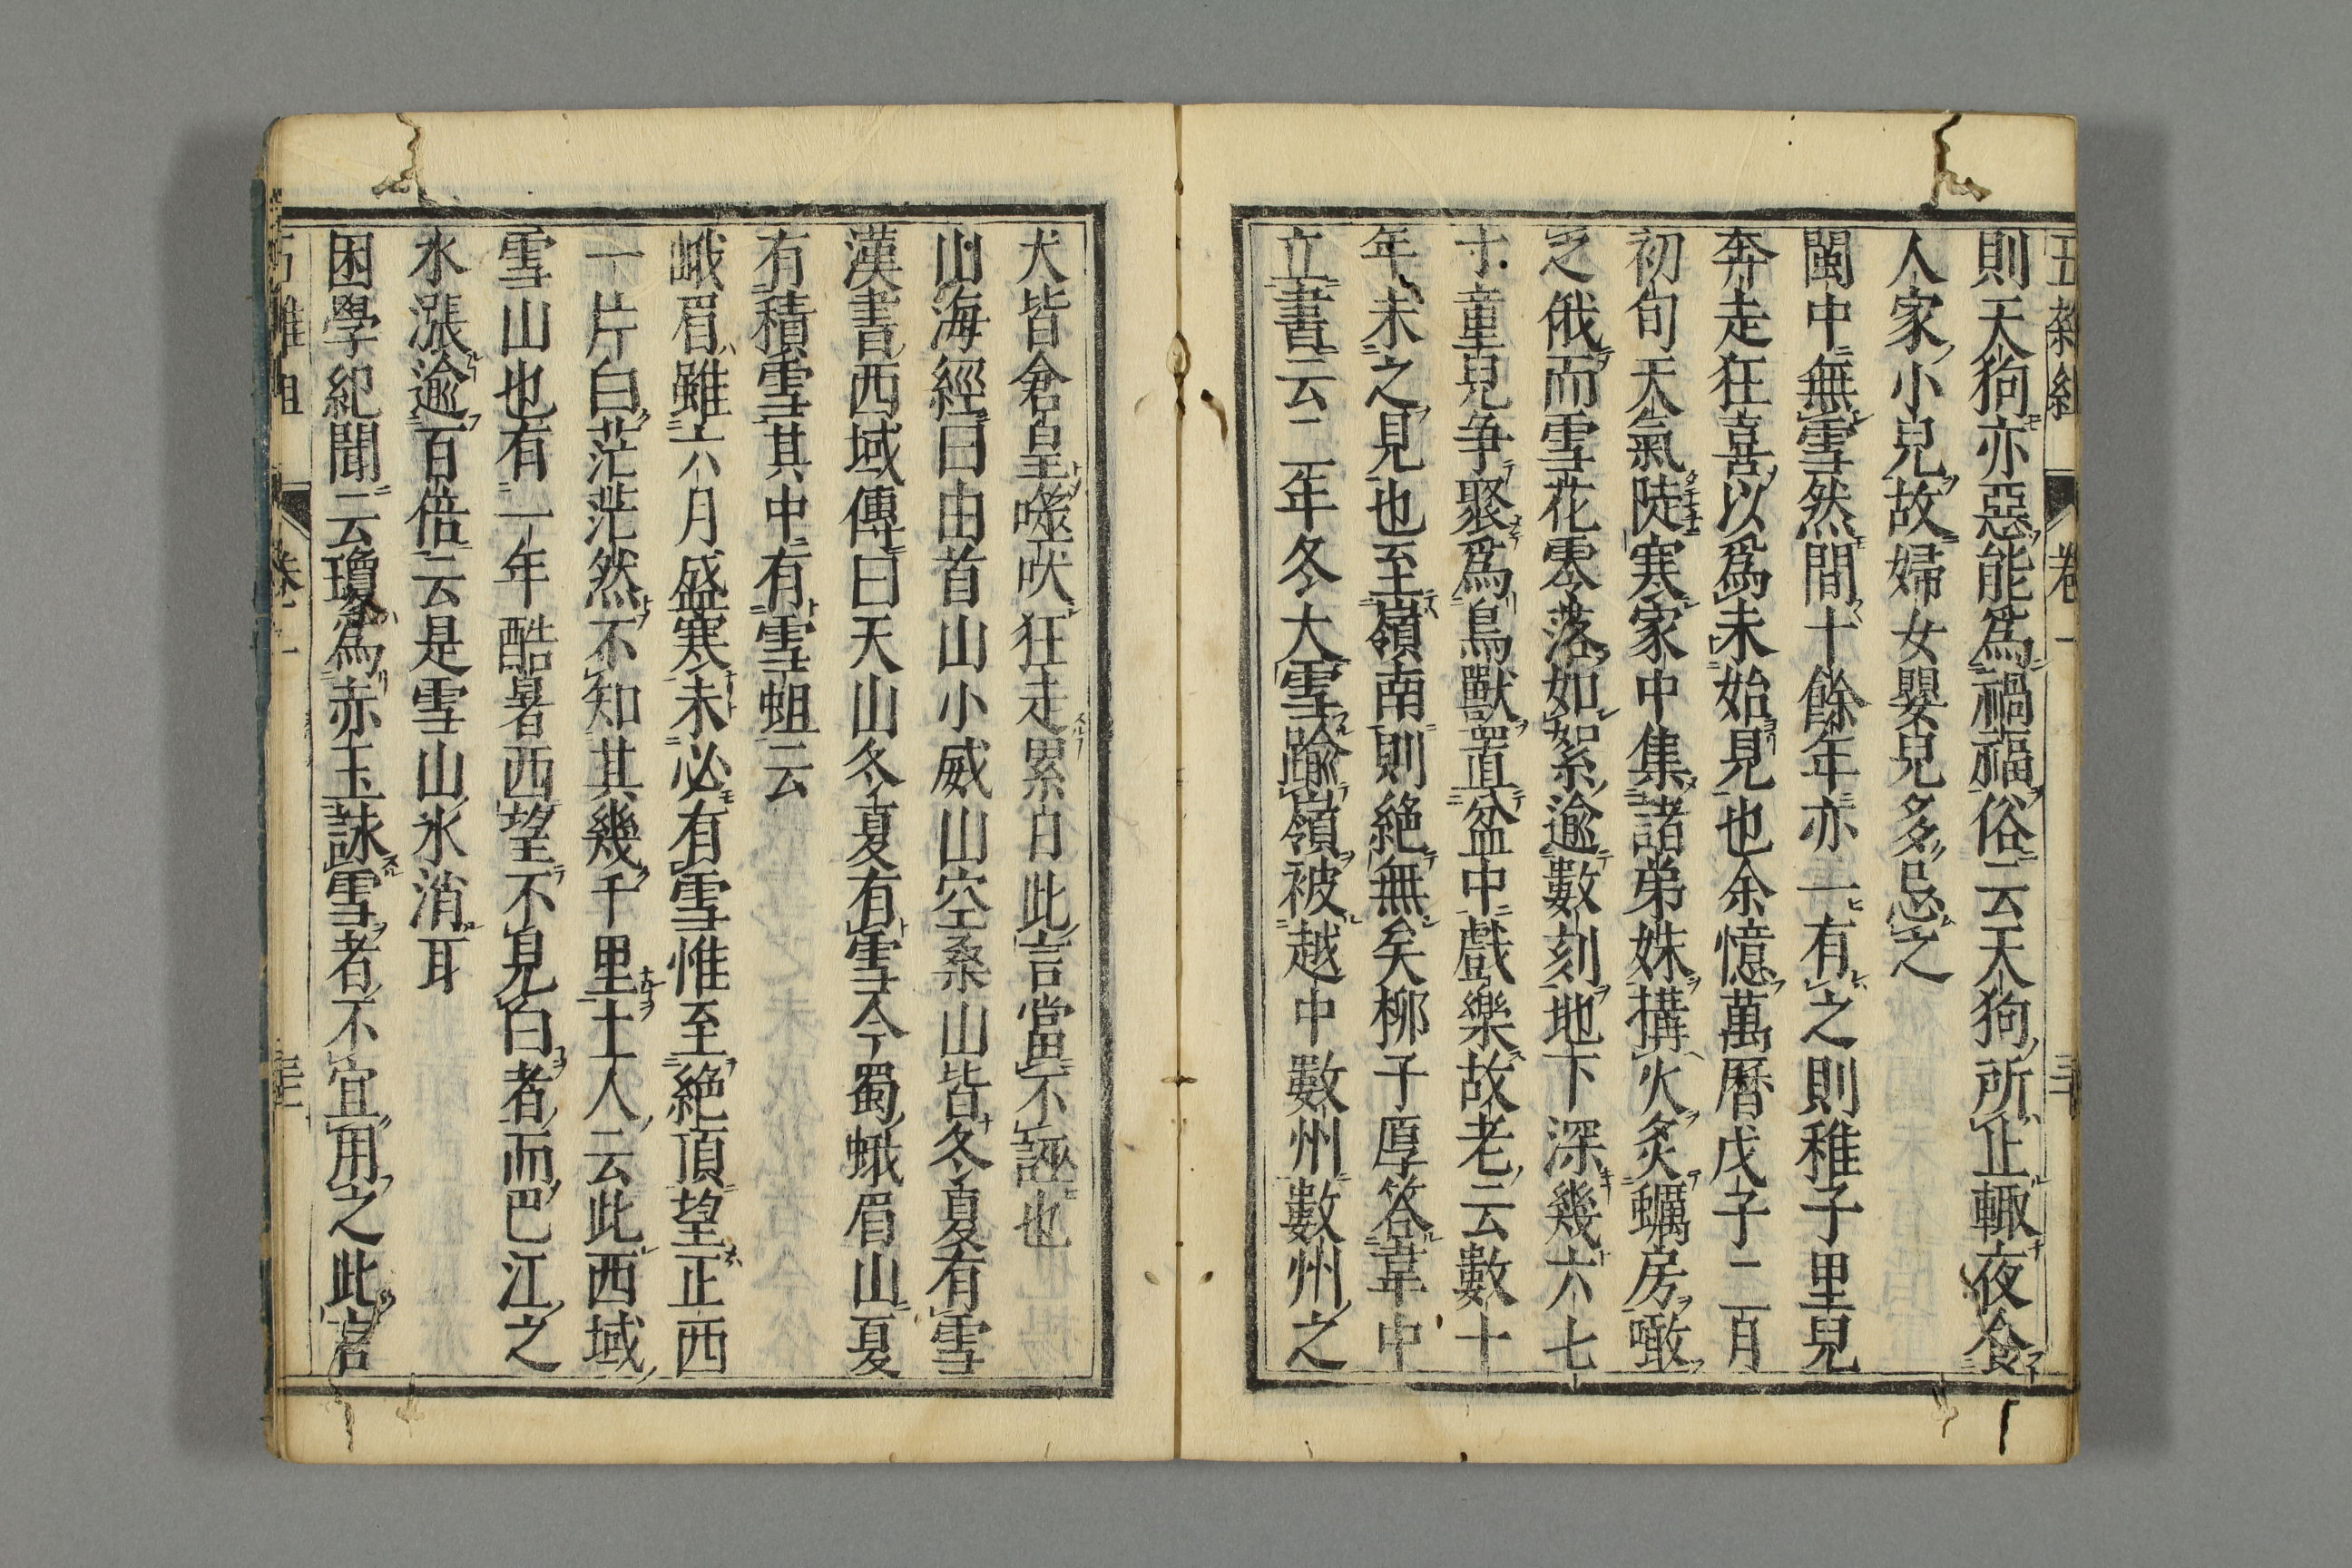 五雜組 卷一 三十
則天狗亦惡能爲禍福俗云天狗所止輒夜食
人家小兒故婦女嬰兒多忌之
閩中無雪然間十餘年亦一有之則稚子里兒
奔走狂喜以爲未始見也余憶萬曆戊子二月
初旬天氣陡寒家中集諸弟妹搆火炙蠣房噉
之俄而雪花零落如絮逾數刻地下深幾六七
寸童兒争聚爲鳥獸置盆中戲樂故老云數十
年未之見也至嶺南則絶無矣柳子厚答韋中
立書云二年冬大雪踰嶺被越中數州數州之
犬皆倉皇噬吠狂走累日此言當不誣也
山海經曰由首山小威山空桑山皆冬夏有雪
漢書西域傳曰天山冬夏有雪今蜀蛾眉山夏
有積雪其中有雪蛆云
峨眉雖六月盛寒未必有雪惟至絶頂望正西
一片白茫茫然不知其幾千里土人云此西域
雪山也有一年酷暑西望不見白者而巴江之
水漲逾百倍云是雪山氷消耳
困學紀聞云瓊爲赤玉詠雪者不宜用之此言
五雜組 卷一